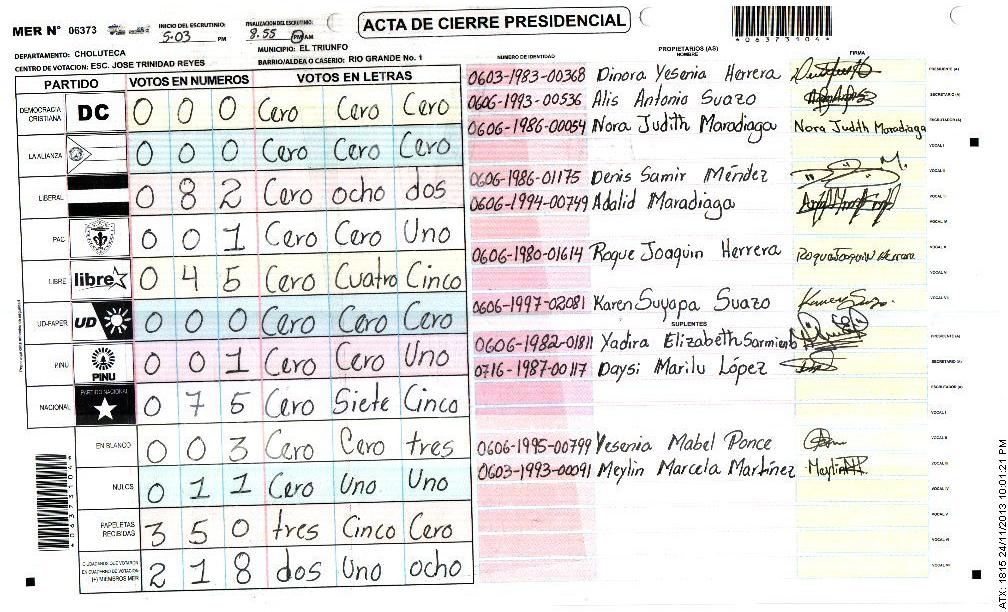 MER N° 06373
INICIO DEL ESCRUTINIO:
5:03 PM
FINALIZACION DEL ESCRUTINIO:
8:55 PM AM
ACTA DE CIERRE PRESIDENCIAL
*06373104*
DEPARTAMENTO: CHOLUTECA
MUNICIPIO: EL TRIUNFO
CENTRO DE VOTACION: ESC. JOSE TRINIDAD REYES
BARRIO/ALDEA O CASERIO: RIO GRANDE No. 1
PARTIDO VOTOS EN NUMEROS VOTOS EN LETRAS
DEMOCRACIA CRISTIANA DC 0 0 0 Cero Cero Cero
LA ALIANZA 0 0 0 Cero Cero Cero
LIBERAL 0 8 2 Cero ocho dos
PAC 0 0 1 Cero Cero Uno
LIBRE libre 0 4 5 Cero Cuatro Cinco
UD-FAPER UD 0 0 0 Cero Cero Cero
PINU PINU 0 0 1 Cero Cero Uno
NACIONAL PARTIDO NACIONAL 0 7 5 Cero Siete Cinco
EN BLANCO 0 0 3 Cero Cero tres
NULOS 0 1 1 Cero Uno Uno
PAPELETAS RECIBIDAS 3 5 0 tres Cinco Cero
CIUDADANOS QUE VOTARON EN CUADERNO DE VOTACION (+) MIEMBROS MER 2 1 8 dos Uno ocho
*06373104*
PROPIETARIOS (AS)
NUMERO DE IDENTIDAD NOMBRE FIRMA
0603-1983-00368 Dinora Yesenia Herrera PRESIDENTE (A)
0606-1993-00536 Alis Antonio Suazo SECRETARIO (A)
0606-1986-00054 Nora Judith Maradiaga Nora Judith Maradiaga ESCRUTADOR (A)
VOCAL I
0606-1986-01175 Denis Samir Méndez VOCAL II
0606-1994-00749 Adalid Maradiaga VOCAL III
VOCAL IV
0606-1980-01614 Roque Joaquin Herrera Roque Joaquin Herrera VOCAL V
VOCAL VI
0606-1997-02081 Karen Suyapa Suazo VOCAL VII
SUPLENTES
0606-1982-01811 Yadira Elizabeth Sarmiento PRESIDENTE (A)
0716-1987-00117 Daysi Marilu López SECRETARIO (A)
ESCRUTADOR (A)
VOCAL I
0606-1995-00799 Yesenia Mabel Ponce VOCAL II
0603-1993-00091 Meylin Marcela Martínez VOCAL III
VOCAL IV
VOCAL V
VOCAL VI
VOCAL VII
ATX: 1815 24/11/2013 10:01:21 PM